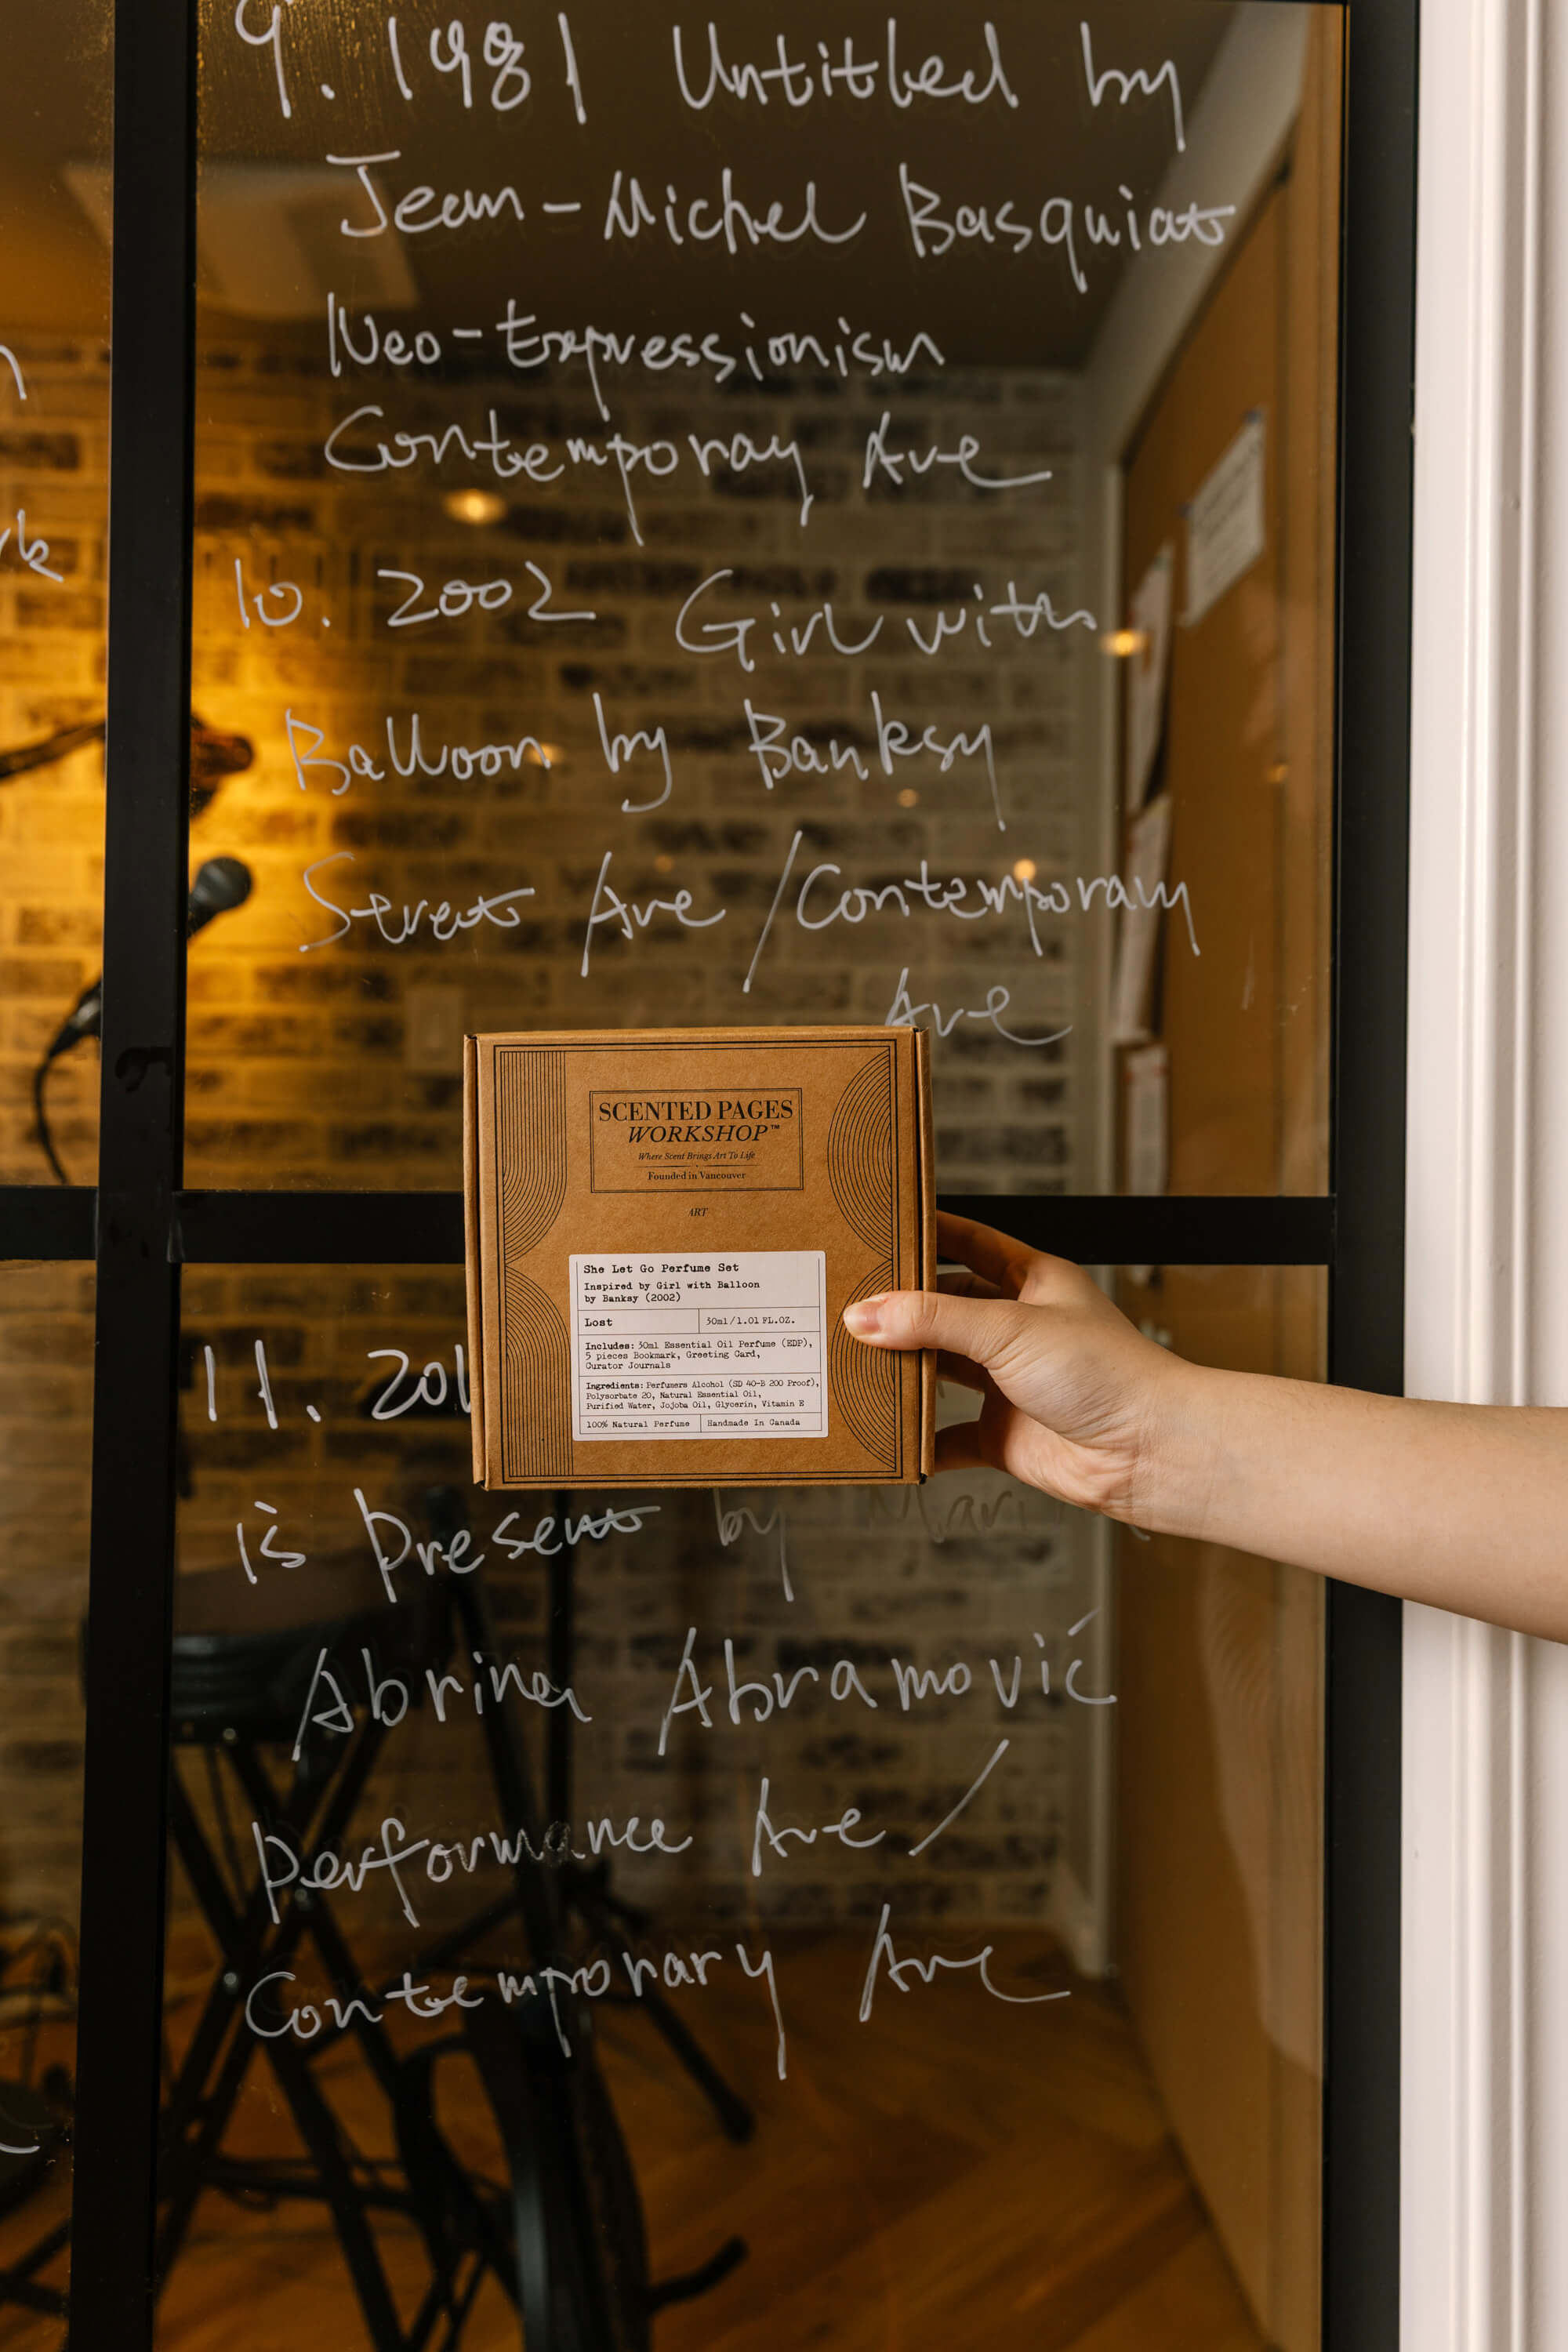 9. 1981 Untitled by
Jean-Michel Basquiat
Neo-Expressionism
Contemporay Ave
10. 2002 Girl with
Balloon by Banksy
Street Ave / Contemporary
Ave
SCENTED PAGES
WORKSHOP™
Where Scent Brings Art To Life
Founded in Vancouver
ART
She Let Go Perfume Set
Inspired by Girl with Balloon
by Banksy (2002)
Lost 30ml/1.01 FL.OZ.
Includes: 30ml Essential Oil Perfume (EDP),
5 pieces Bookmark, Greeting Card,
Curator Journals
Ingredients: Perfumers Alcohol (SD 40-B 200 Proof),
Polysorbate 20, Natural Essential Oil,
Purified Water, Jojoba Oil, Glycerin, Vitamin E
100% Natural Perfume Handmade In Canada
11. 201
is present by Mari
Abrina Abramović
performance Ave /
Contemporary Ave